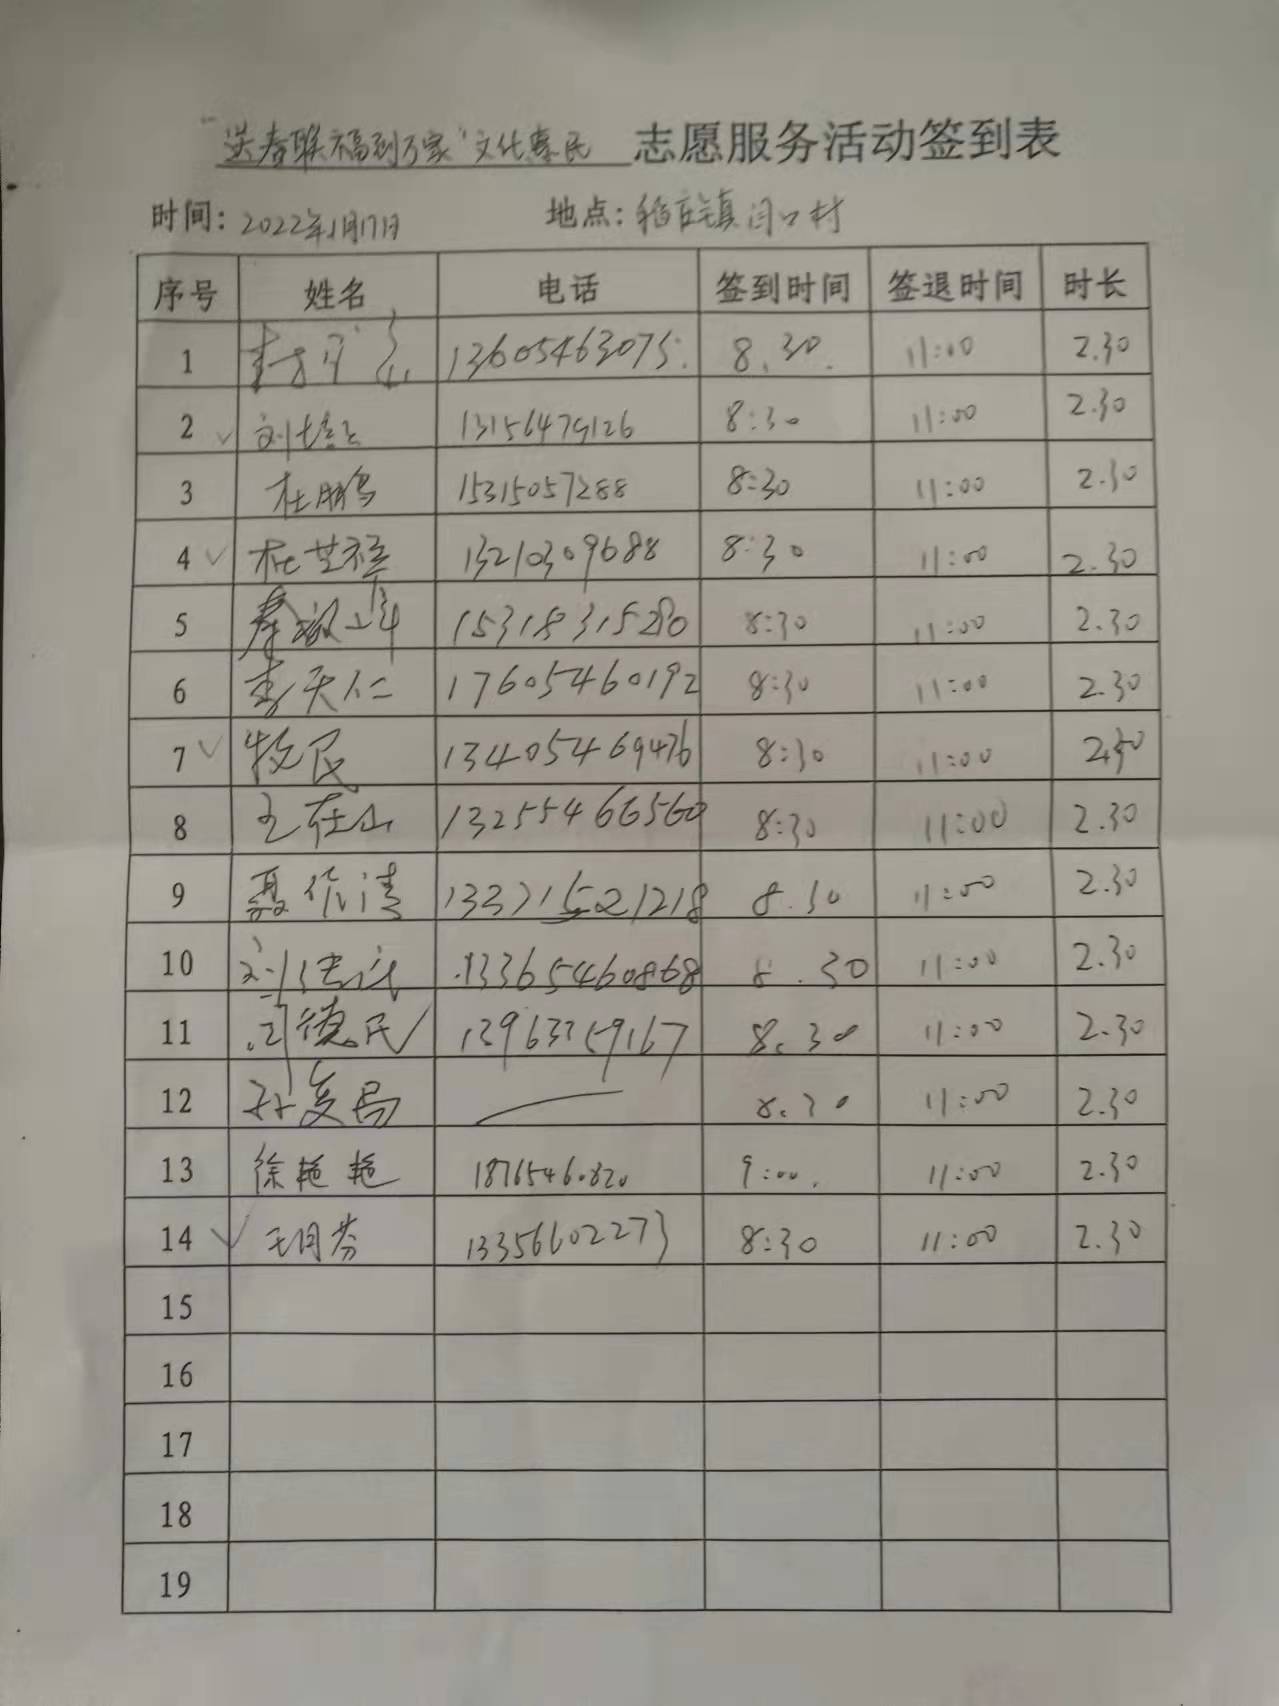 "送春联福到万家"文化惠民 志愿服务活动签到表
时间: 2022年1月17日 地点: 稻庄镇闫口村
序号 姓名 电话 签到时间 签退时间 时长
1 13605463075 8.30. 11:00 2.30
2 ✓ 13156479126 8:30 11:00 2.30
3 杜鹏 15315057288 8:30 11:00 2.30
4 ✓ 杜世禄 13210309688 8:30 11:00 2.30
5 15318315280 8:30 11:00 2.30
6 李天仁 17605460192 8:30 11:00 2.30
7 ✓ 牧民 13405469476 8:30 11:00 2.30
8 王在山 13255466560 8:30 11:00 2.30
9 聂作清 8.30 11:00 2.30
10 13365460868 8.30 11:00 2.30
11 德民 8.30 11:00 2.30
12 孙复局 — 8.30 11:00 2.30
13 徐艳艳 18765460820 9:00. 11:00 2.30
14 ✓ 王月芬 13356602273 8:30 11:00 2.30
15
16
17
18
19